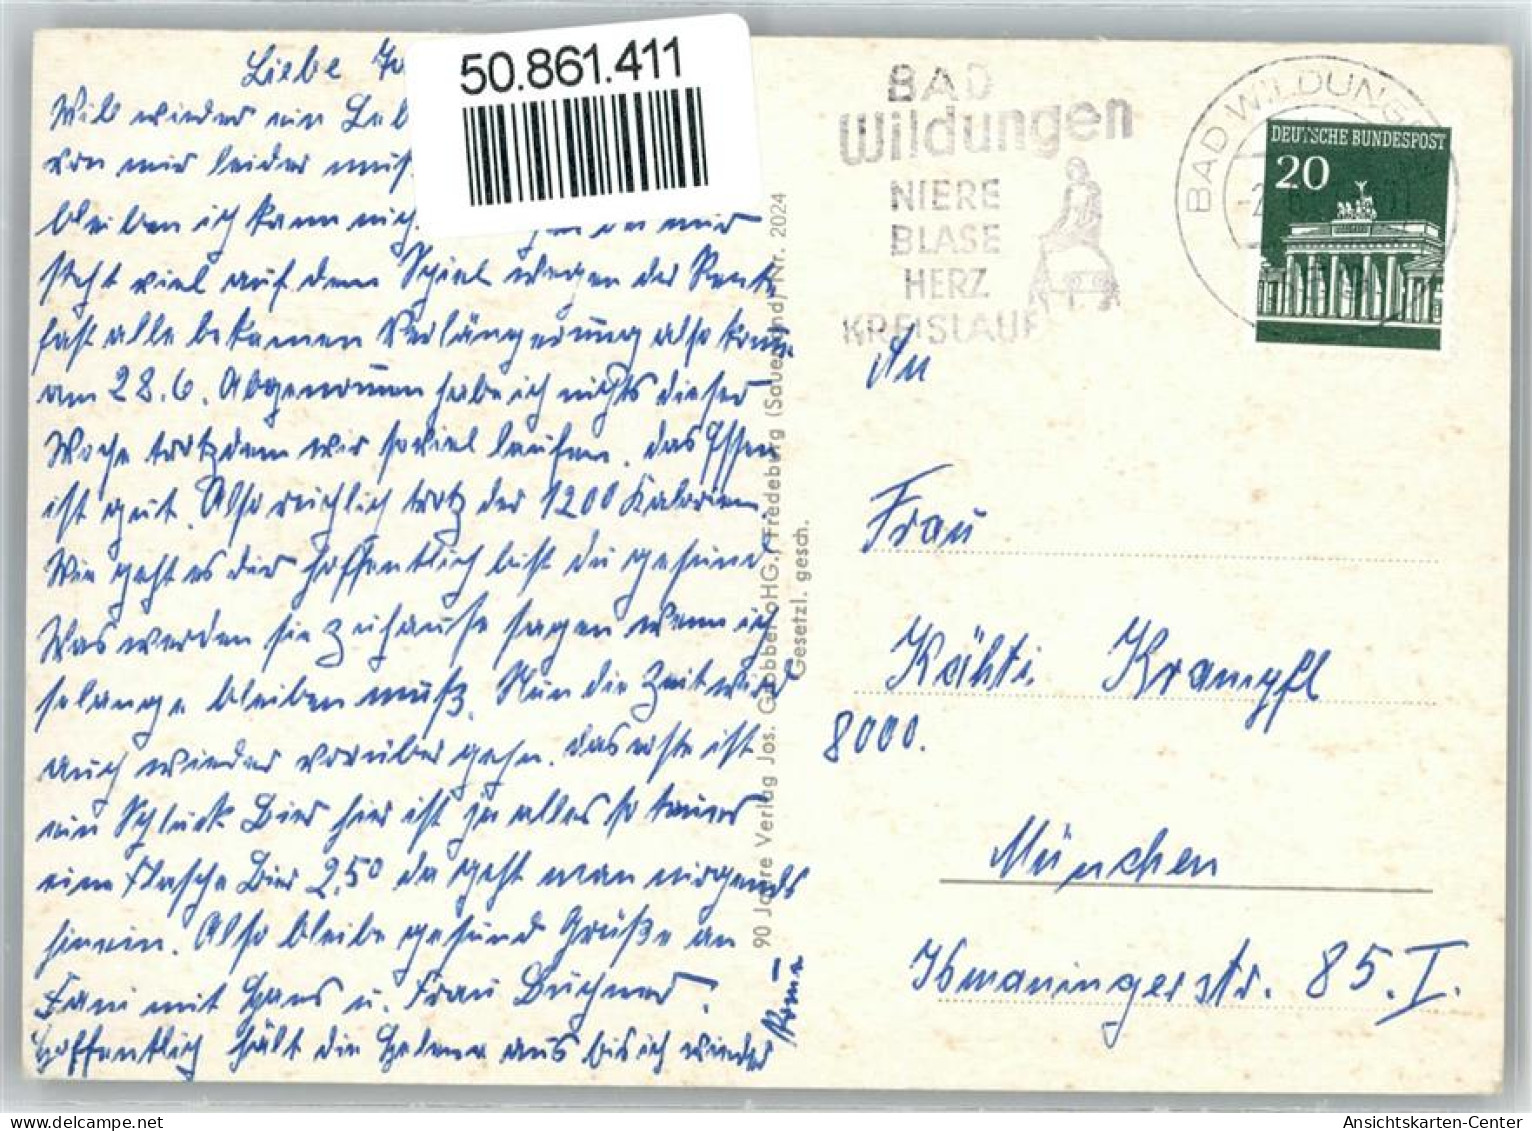 50.861.411
Liebe
Will wieder ein Leb
von mir leider muß
bleiben ich kann nich
mir
steht viel auf dem Spiel wegen der Rente
fast alle bekamen Verlängerung also
am 28.6. Abgenommen habe ich nichts dieser
Woche trotzdem wir soviel laufen. das Essen
ist gut. Also reichlich trotz der 1200 Kalorien.
Wie geht es dir hoffentlich bist du gesund
Was werden sie zuhause sagen wenn ich
solange bleiben muß. Nun die Zeit wird
auch wieder vorüber gehn. das erste ist
ein Schluck Bier hier ist ja alles so teuer
eine Flasche Bier 2,50 da geht man nirgends
hinein. Also bleibe gesund Grüße an
Fani mit Hans u. Frau Buchner.
Hoffentlich hält die Helene aus bis ich wieder
komme
90 Jahre Verlag Jos. Grobbel oHG., Fredeburg (Sauerland) Nr. 2024
Gesetzl. gesch.
BAD
Wildungen
NIERE
BLASE
HERZ
KREISLAUF
BAD WILDUNGEN
DEUTSCHE BUNDESPOST
20
An
Frau
Kähti Krampfl
8000.
München
Ismaningerstr. 85.I.
Ansichtskarten-Center